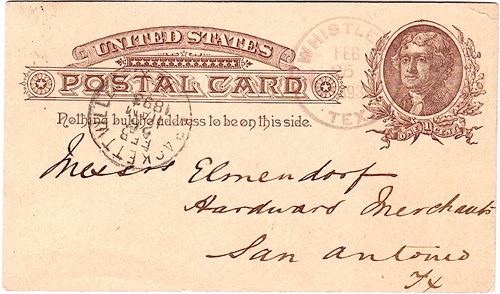 UNITED STATES
POSTAL CARD
Nothing but address to be on this side.
ONE 1 CENT
WHISTLE
FEB
5
TEX
SACKETTVILLE
FEB
1894
Messrs Elmendorf
Hardward Merchants
San Antonio
Tx